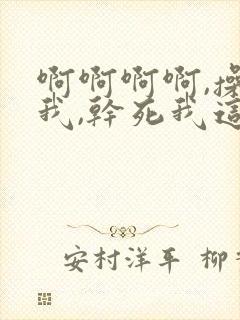 啊啊啊啊,操
我,幹死我這
安村洋平 柳